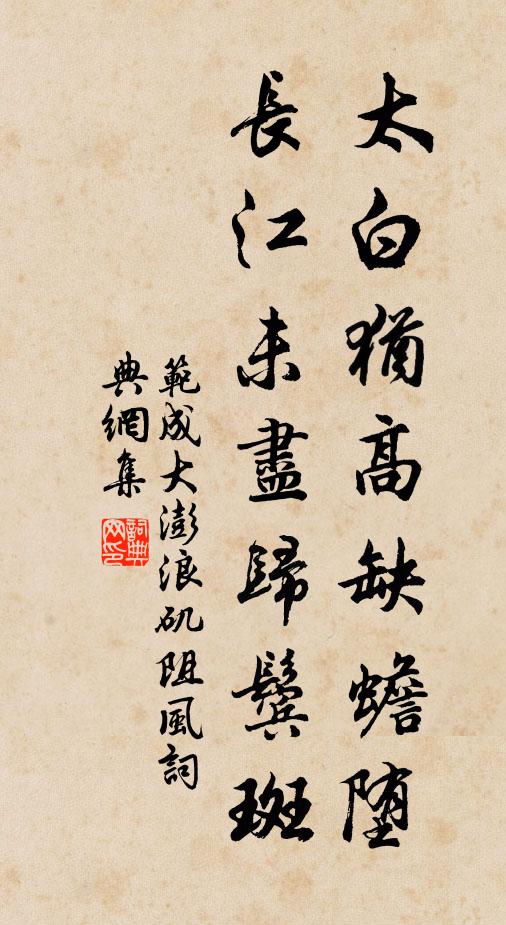 太白猶高缺蟾堕
長江未盡歸鬓斑
範成大澎浪矶阻風詞
典網集
詞典網印